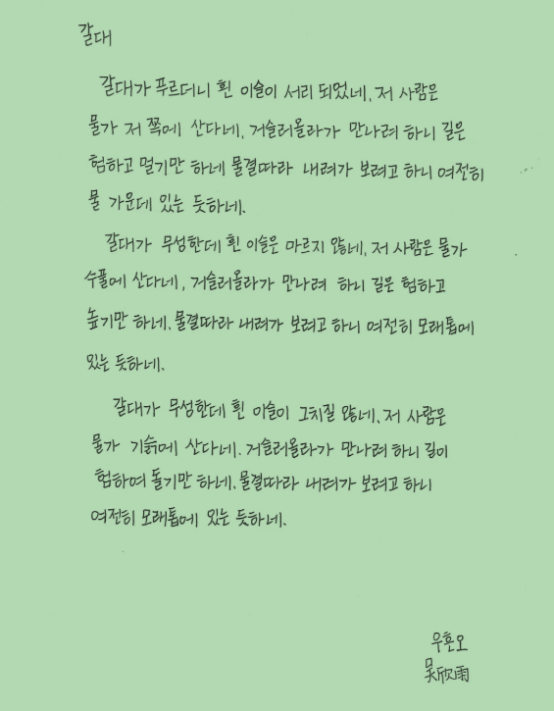 갈대
갈대가 푸르더니 흰 이슬이 서리 되었네, 저 사람은
물가 저 쪽에 산다네, 거슬러올라가 만나려 하니 길은
험하고 멀기만 하네 물결따라 내려가 보려고 하니 여전히
물 가운데 있는 듯하네.
갈대가 무성한데 흰 이슬은 마르지 않네, 저 사람은 물가
수풀에 산다네, 거슬러올라가 만나려 하니 길은 험하고
높기만 하네. 물결따라 내려가 보려고 하니 여전히 모래톱에
있는 듯하네.
갈대가 무성한데 흰 이슬이 그치질 않네, 저 사람은
물가 기슭에 산다네. 거슬러올라가 만나려 하니 길이
험하여 돌기만 하네. 물결따라 내려가 보려고 하니
여전히 모래톱에 있는 듯하네.
우흔오
吴欣雨